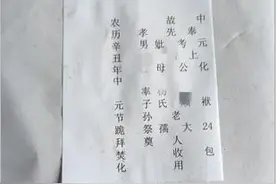 中元化袱24包
奉上
故先考公老大人收用
妣母氏孺
孝男率子孙祭奠
农历辛丑年中元节跪拜焚化